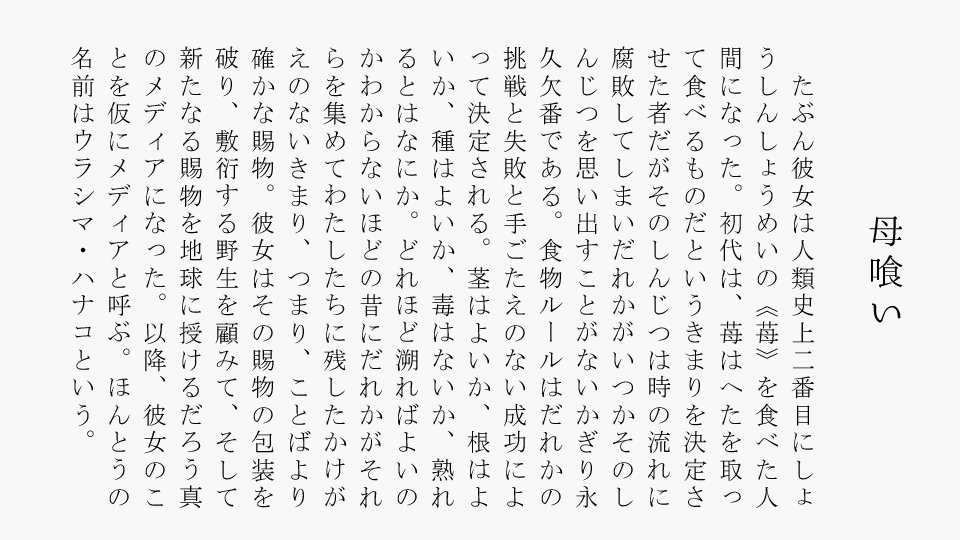 母喰い
たぶん彼女は人類史上二番目にしょ
うしんしょうめいの《苺》を食べた人
間になった。初代は、苺はへたを取っ
て食べるものだというきまりを決定さ
せた者だがそのしんじつは時の流れに
腐敗してしまいだれかがいつかそのし
んじつを思い出すことがないかぎり永
久欠番である。食物ルールはだれかの
挑戦と失敗と手ごたえのない成功によ
って決定される。茎はよいか、根はよ
いか、種はよいか、毒はないか、熟れ
るとはなにか。どれほど溯ればよいの
かわからないほどの昔にだれかがそれ
らを集めてわたしたちに残したかけが
えのないきまり、つまり、ことばより
確かな賜物。彼女はその賜物の包装を
破り、敷衍する野生を顧みて、そして
新たなる賜物を地球に授けるだろう真
のメディアになった。以降、彼女のこ
とを仮にメディアと呼ぶ。ほんとうの
名前はウラシマ・ハナコという。